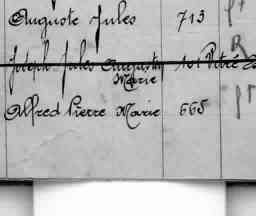 Auguste Jules 713
Joseph Jules Augustin
Marie 101 Vitré
Alfred Pierre Marie 665